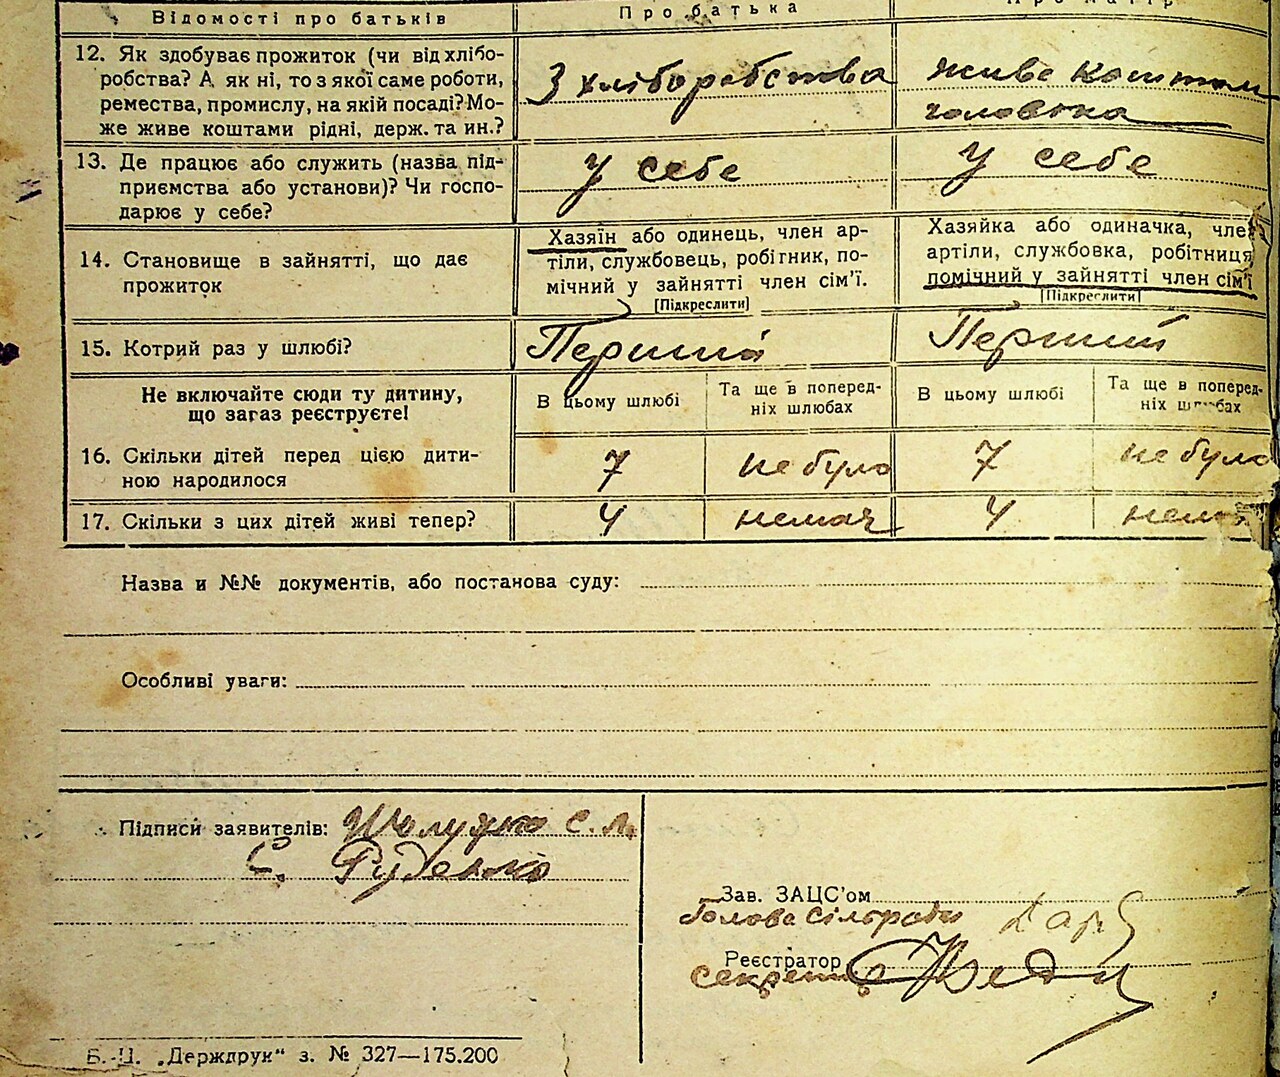 Відомості про батьків
Про батька
12. Як здобуває прожиток (чи від хлібо-
робства? А як ні, то з якої саме роботи,
ремества, промислу, на якій посаді? Мо-
же живе коштами рідні, держ. та ин.?
З хліборобства
живе коштом
чоловіка
13. Де працює або служить (назва під-
приємства або установи)? Чи госпо-
дарює у себе?
У себе
У себе
14. Становище в зайнятті, що дає
прожиток
Хазяїн або одинець, член ар-
тіли, службовець, робітник, по-
мічний у зайнятті член сім'ї.
[Підкреслити]
Хазяйка або одиначка, член
артіли, службовка, робітниця
помічний у зайнятті член сім'ї
[Підкреслити]
15. Котрий раз у шлюбі?
Перший
Перший
Не включайте сюди ту дитину,
що зараз реєструєте!
В цьому шлюбі
Та ще в поперед-
ніх шлюбах
В цьому шлюбі
Та ще в поперед-
ніх шлюбах
16. Скільки дітей перед цією дити-
ною народилося
7
не було
7
не було
17. Скільки з цих дітей живі тепер?
4
немає
4
Назва и №№ документів, або постанова суду:
Особливі уваги:
Підписи заявителів: С. Л.
С. Руденко
Зав. ЗАЦС'ом
Голова сільради
Реєстратор
секретар
Б.-Ц. „Держдрук" з. № 327—175.200